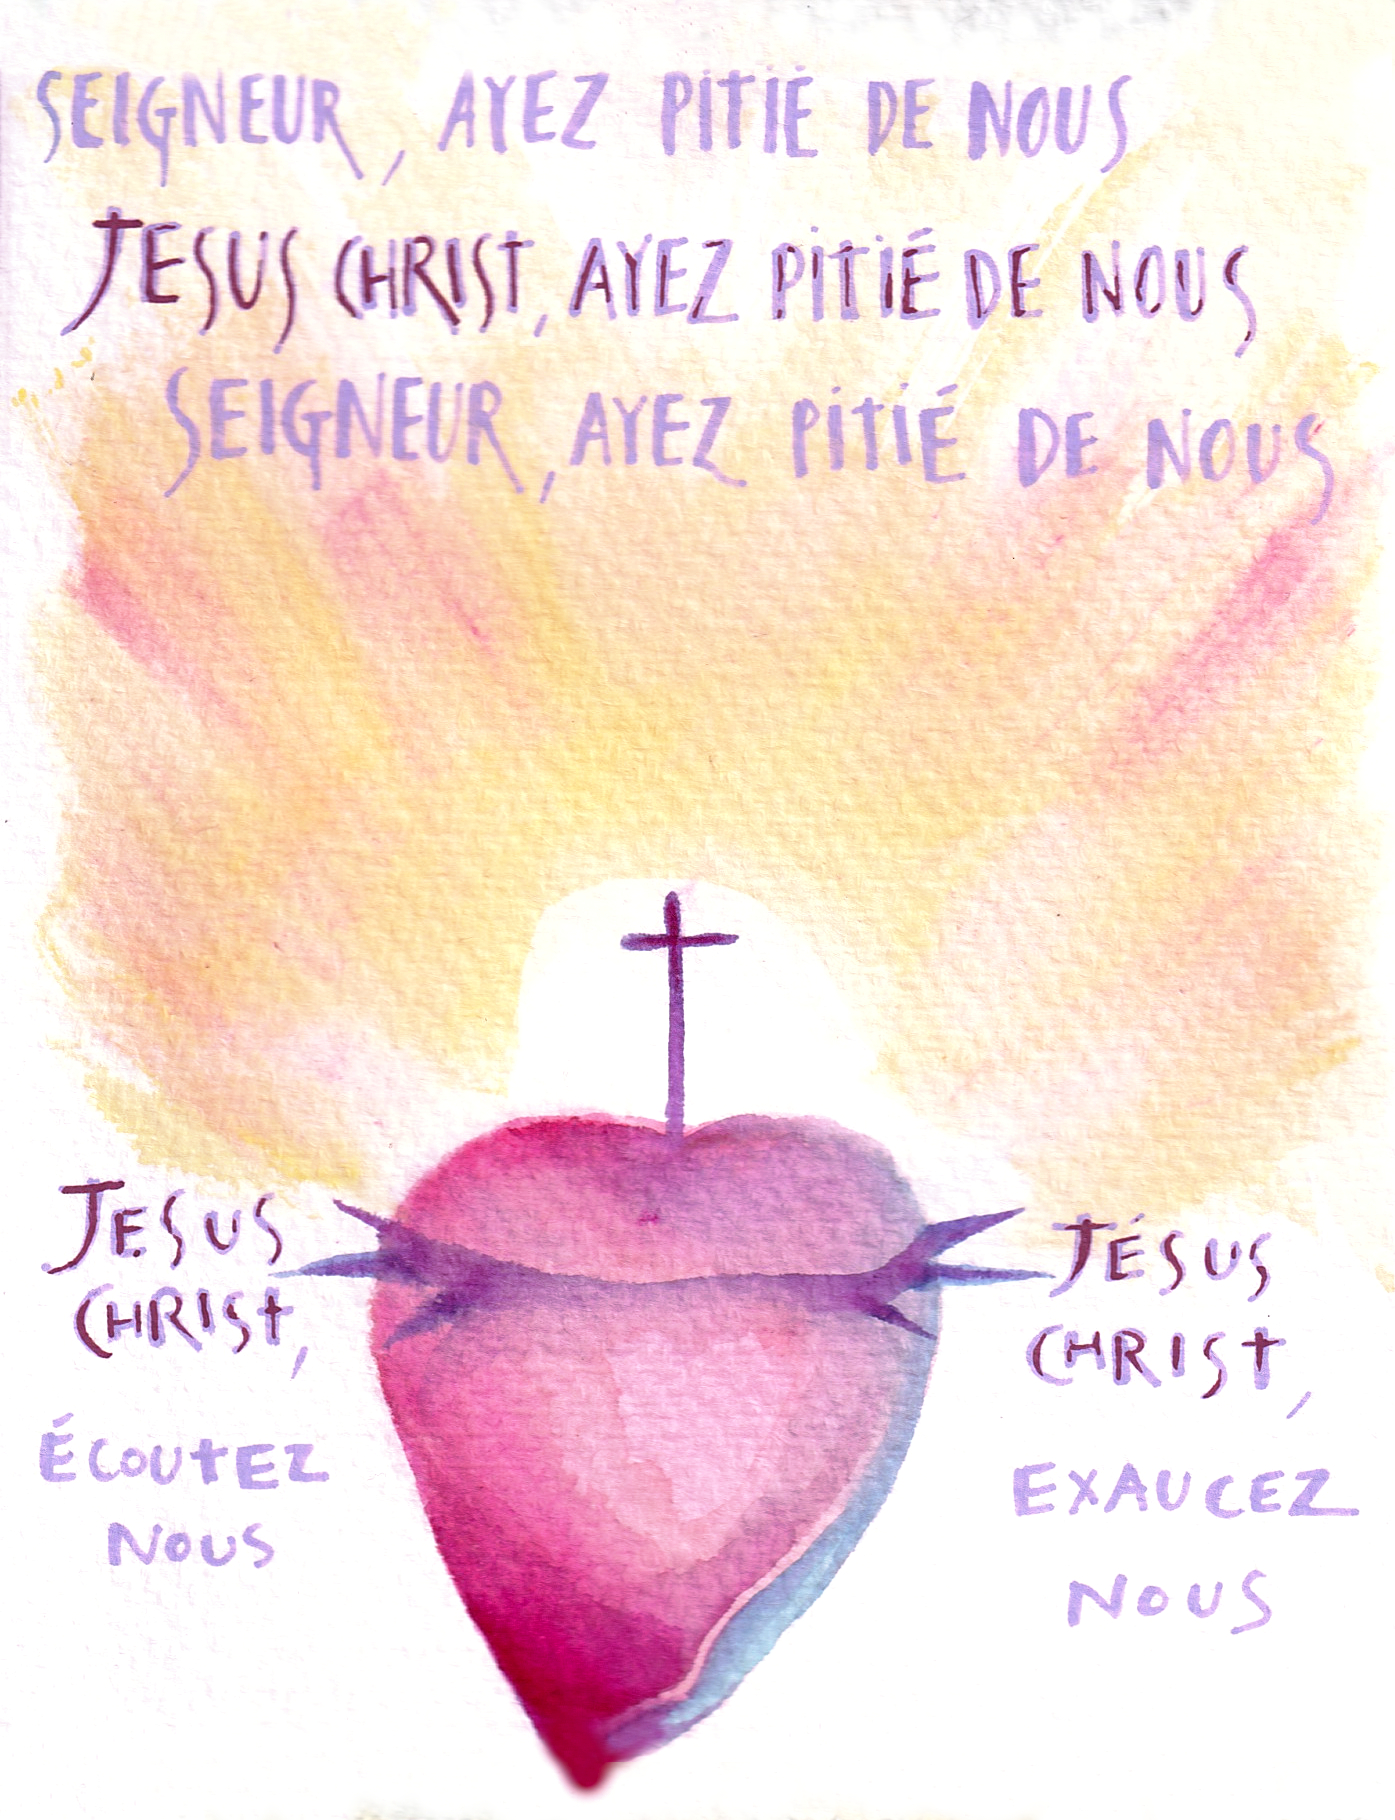 SEIGNEUR, AYEZ PITIÉ DE NOUS
JESUS CHRIST, AYEZ PITIÉ DE NOUS
SEIGNEUR, AYEZ PITIÉ DE NOUS
JESUS
CHRIST,
ÉCOUTEZ
NOUS
JÉSUS
CHRIST,
EXAUCEZ
NOUS